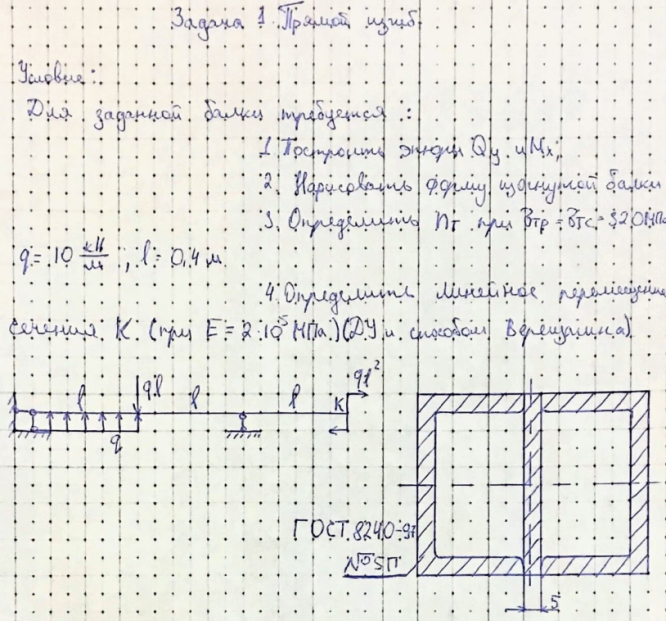 Задача 1. Прямой изгиб.
Условие:
Для заданной балки требуется :
1. Построить эпюры Qy и Mx;
2. Нарисовать форму изогнутой балки
3. Определить nт при σтр = σтс = 320 МПа
q = 10 кН/м , l = 0,4 м
4. Определить линейное перемещение
сечения K. (при E = 2·10⁵ МПа.) (ДУ и способом Верещагина)
l ql l l K ql²
q
ГОСТ 8240-97
№5П
5